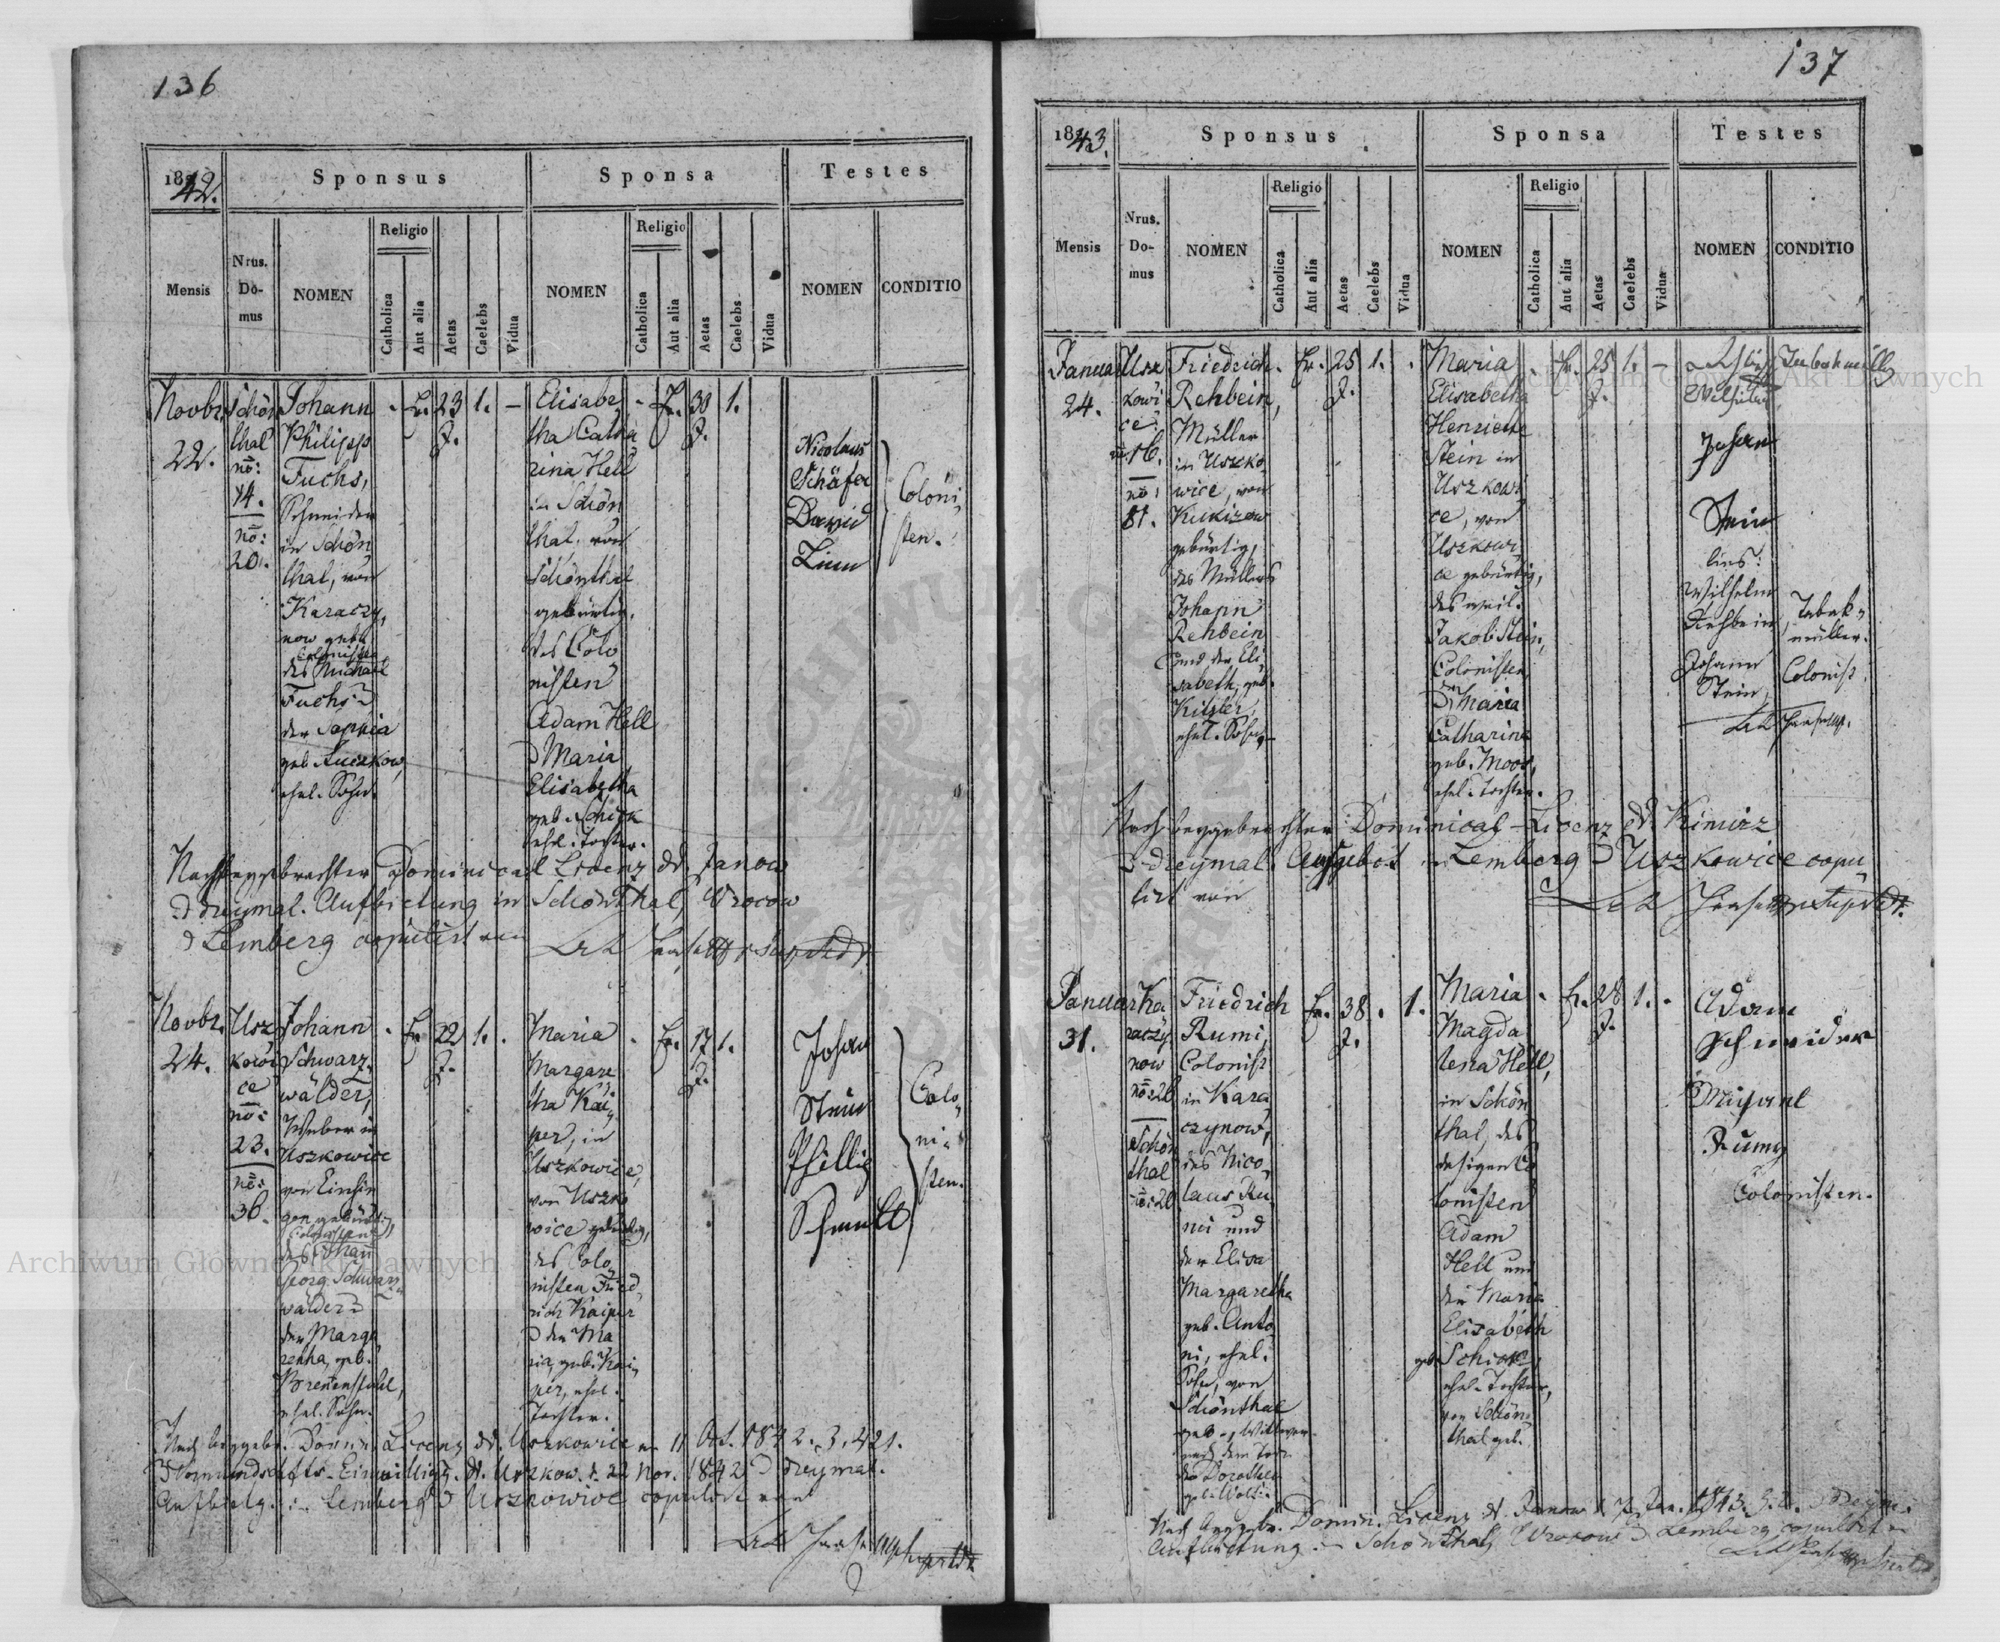 136
1842.
Sponsus
Sponsa
Testes
Mensis
Nrus. Do- mus
NOMEN
Religio
Catholica
Aut alia
Aetas
Caelebs
Vidua
NOMEN
Religio
Catholica
Aut alia
Aetas
Caelebs
Vidua
NOMEN
CONDITIO
Novbr.
22.
Schön
thal
no:
14.
no:
20.
Johann
Philipp
Fuchs,
Schneider
in Schön
thal, von
Karaczy,
now geb.
Colonisten
des Michael
Fuchs
der Sophia
geb.
ehel. Sohn.
23
J.
1.
Elisabe
tha Catha
rina Hell
in Schön
thal, von
Schönthal
gebürtig,
des Colo
nisten
Adam Hell
Maria
Elisabetha
geb. Schick
ehel. Tochter.
30
J.
1.
Nicolaus
Schäfer
David
Linn
Coloni
sten.
Nach beygebrachter Dominical Licenz dd. Janow
dreymal. Aufbietung in Schönthal, Wrocow
Lemberg copulirt von
Novbr.
24.
Usz
kowi
ce
no:
23.
no:
36.
Johann
Schwarz-
wälder,
Weber in
Uszkowice
von Einsin
gen gebürtig,
Colonisten
des Johann
Georg Schwarz
wälder
der Marga
retha, geb.
ehel. Sohn.
22
J.
1.
Maria
Margare
tha Kai
per, in
Uszkowice,
von Uszko
wice gebürtig,
des Colo
nisten Fried
rich Kaiper
der Ma
ria, geb. Kai
per, ehel.
Tochter.
17
J.
1.
Johan
Stein
Phillip
Schmitt
Colo
ni
sten.
Nach beygebr. Domin. Licenz dd. Uszkowice 11 Oct. 1842. 3. 421.
Vormundschafts-Einwillig. dd. Uszkow. d. 22 Nov. 1842 dreymal.
Aufbietg. in Lemberg Uszkowice copulirt von
137
1843.
Sponsus
Sponsa
Testes
Mensis
Nrus. Do- mus
NOMEN
Religio
Catholica
Aut alia
Aetas
Caelebs
Vidua
NOMEN
Religio
Catholica
Aut alia
Aetas
Caelebs
Vidua
NOMEN
CONDITIO
Januar
24.
Usz
kowi
ce
16.
no:
81.
Friedrich
Rehbein,
Müller
in Uszko
wice, von
Kukizow
gebürtig,
des Müllers
Johann
Rehbein
und der Eli
sabeth, geb.
ehel. Sohn
25
J.
1.
Maria
Elisabetha
Henriette
Stein in
Uszkowi
ce, von
Uszkowi
ce gebürtig,
des weil.
Jakob Stein,
Colonisten
Maria
Catharina
geb. Moos,
ehel. Tochter.
25
J.
1.
Wilhelm
Johan
Stein
lies:
Wilhelm
Rehbein,
Tabak-
müller.
Johann
Stein,
Colonist.
Nach beygebrachter Dominical-Licenz dd. Kimirz
dreymal. Aufgebot in Lemberg Uszkowice copu
lirt von
Januar
31.
Ka
raczy
now
no: 26
Schön
thal
no: 20
Friedrich
Rumi,
Colonist
in Kara
czynow,
des Nico
laus Ru
mi und
der Elisa
Margaretha
geb. Anto
ni, ehel.
Sohn, von
Schönthal
geb., Wittwer
nach dem Tode
der Dorothea
38.
J.
1.
Maria
Magda
lena Hell,
in Schön
thal, des
dasigen Co
lonisten
Adam
Hell und
der Maria
Elisabeth
geb. Schick,
ehel. Tochter,
von Schön
thal geb.
28
J.
1.
Adam
Schneider
Michael
Rumy
Colonisten.
Nach beygebr. Domin. Licenz dd. Janow d. 7 Jan. 1843.
Aufbietung in Schönthal, Wrocow Lemberg copulirt
Archiwum Główne Akt Dawnych
Archiwum Główne Akt Dawnych